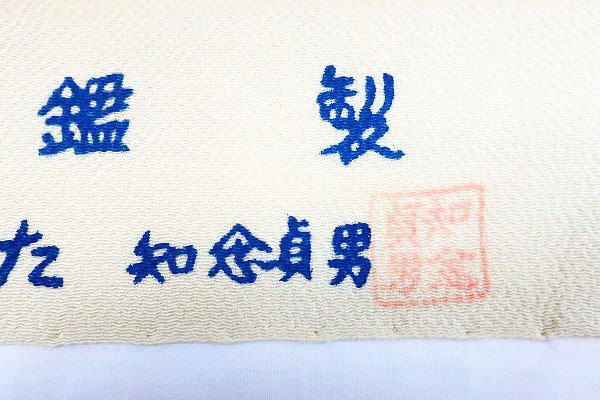 鑑製
なた 知念貞男
知念貞男